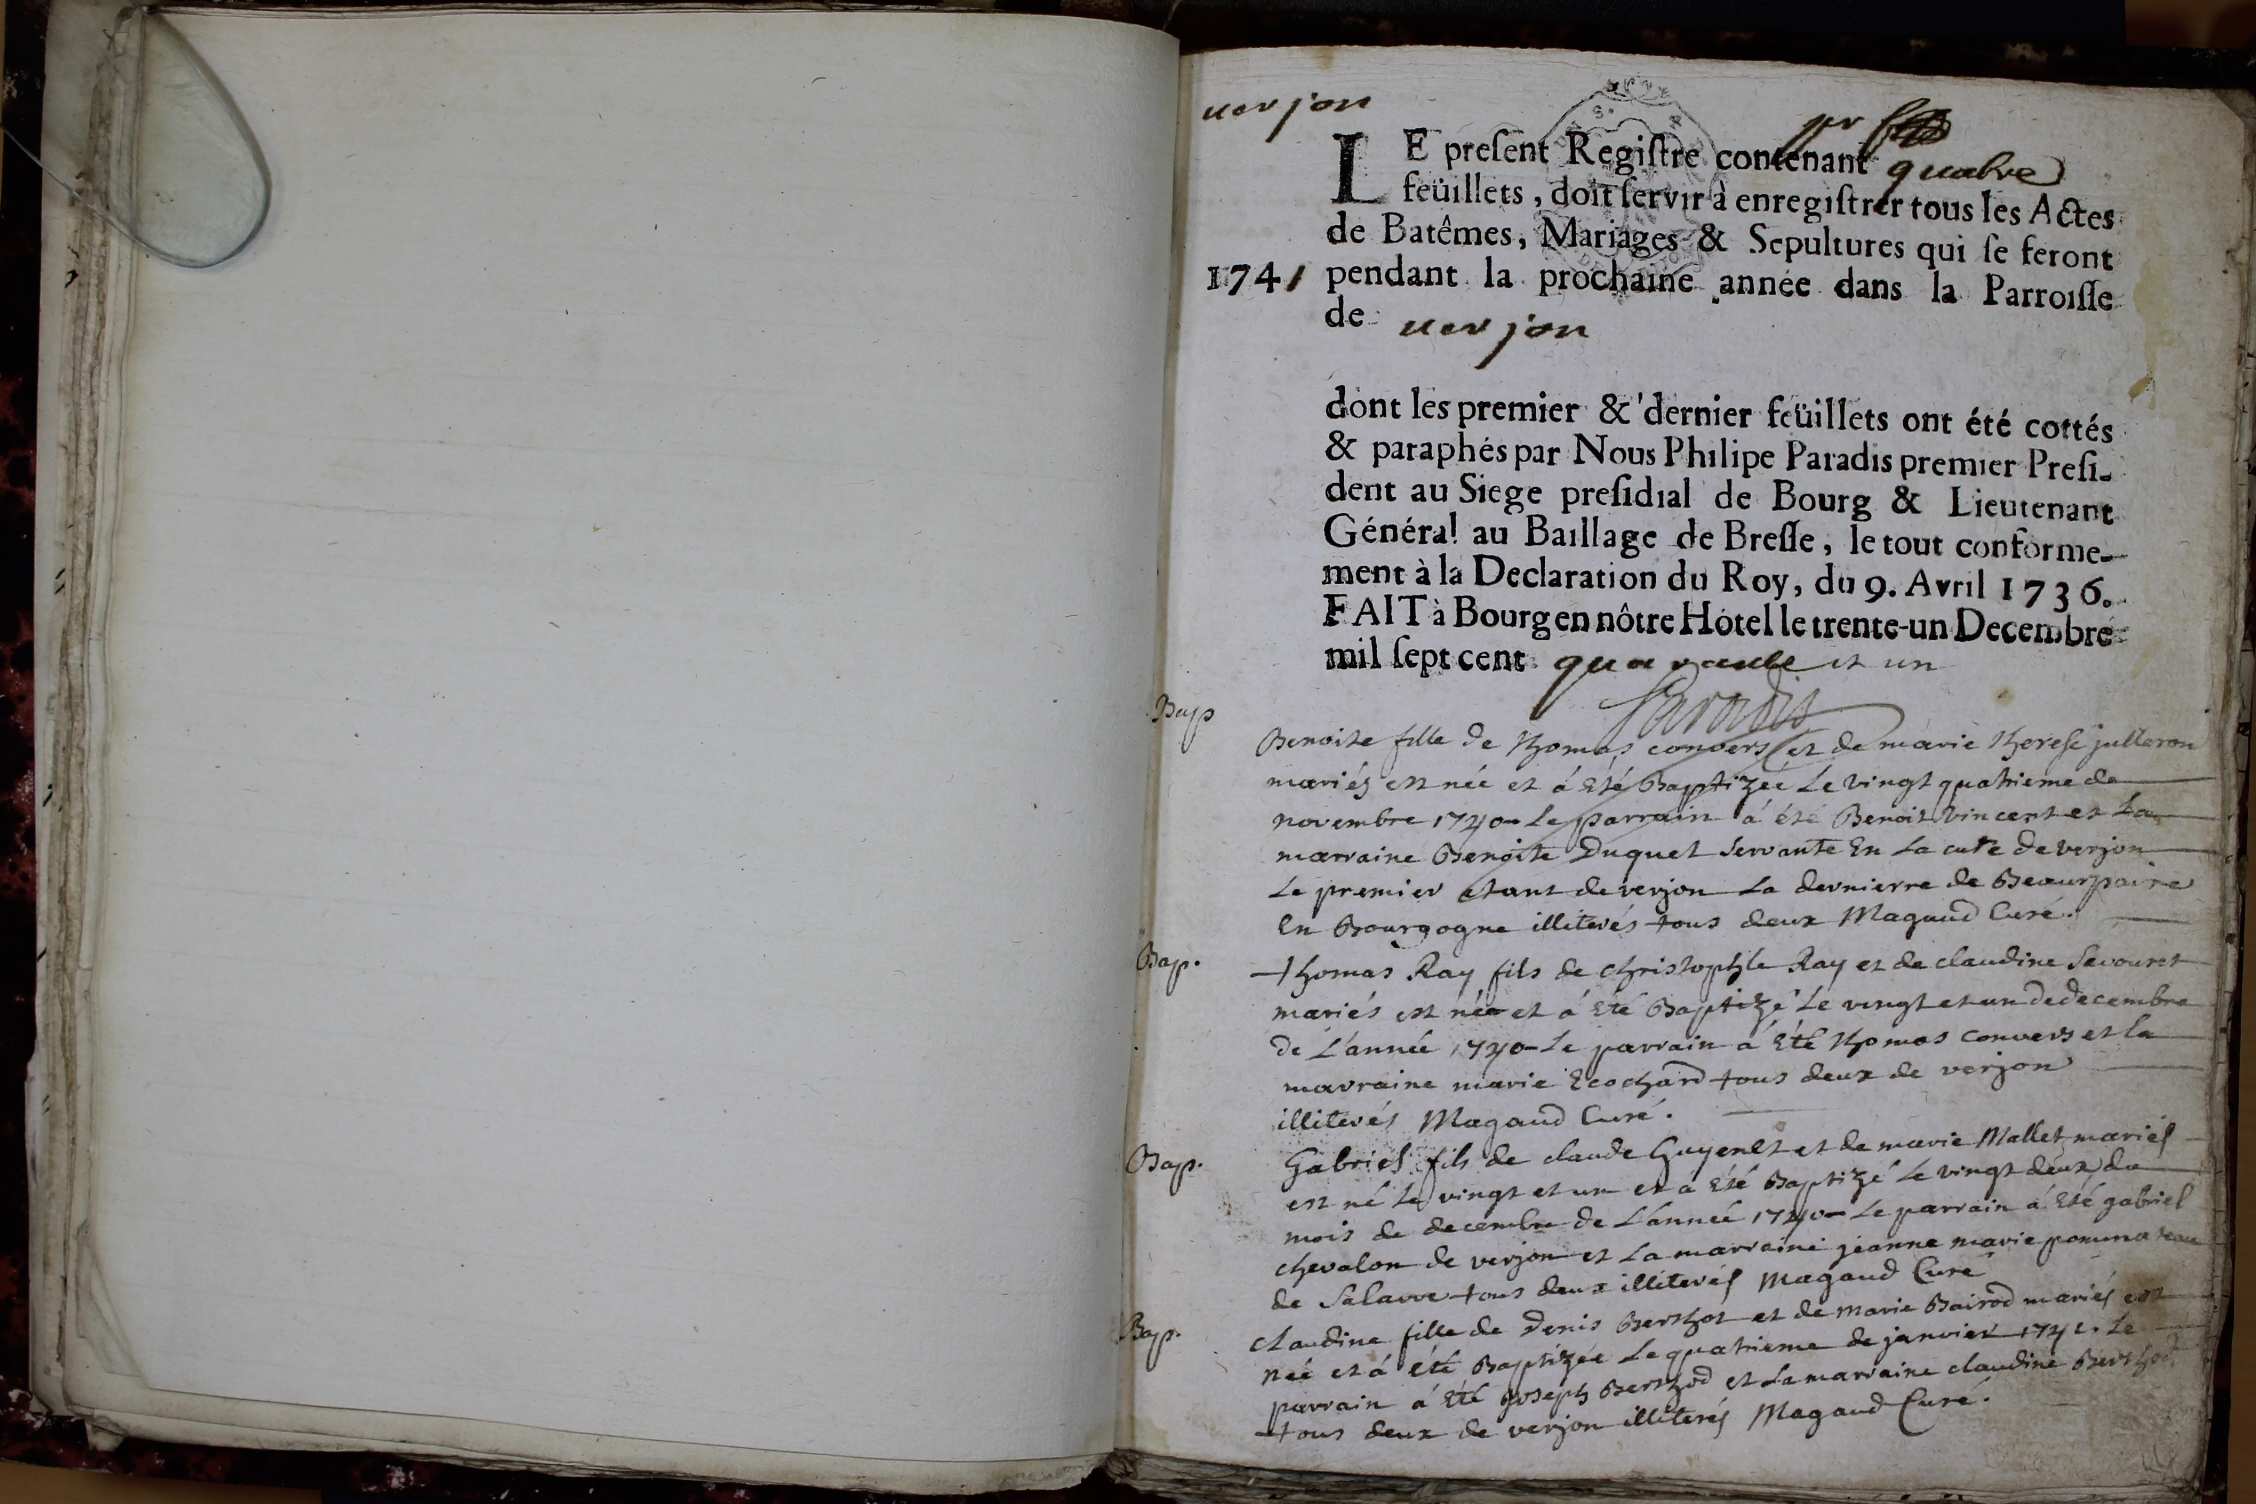 verjon
pr
LE preſent Regiſtre contenant quatre
feüillets, doit ſervir à enregiſtrer tous les Actes
de Batêmes, Mariages & Sepultures qui ſe feront
1741 pendant la prochaine année dans la Parroiſſe
de verjon
dont les premier & dernier feüillets ont été cottés
& paraphés par Nous Philipe Paradis premier Preſi-
dent au Siege preſidial de Bourg & Lieutenant
Général au Baillage de Breſſe, le tout conforme-
ment à la Declaration du Roy, du 9. Avril 1736.
FAIT à Bourg en nôtre Hôtel le trente-un Decembre
mil ſept cent quarante et un
Paradis
Bap
Benoite fille de Thomas convers et de marie Therese julleron
mariés est née et á Eté Baptizée Le vingt quatrieme de
novembre 1740 Le parrain á été Benoit vincent et La
marraine Benoite Duquet servante En La cure de verjon
Le premier etant de verjon La dernierre de Beaurpaire
En Bourgogne illiterés tous deux Magaud Curé.
Bap.
Thomas Ray fils de christophle Ray et de claudine Savouret
mariés est née et á Eté Baptizé Le vingt et un de decembre
de L'année 1740 Le parrain á Eté Thomas convers et la
marraine marie Ecochard tous deux de verjon
illiterés Magaud Curé.
Bap.
Gabriel fils de claude Guyenet et de marie Mallet mariés
est né le vingt et un et á Eté Baptizé Le vingt deux du
mois de decembre de L'année 1740 Le parrain á Eté gabriel
chevalon de verjon et La marraine jeanne marie
de Salavre tous deux illiterés Magaud Curé
Bap.
claudine fille de Denis Berthot et de marie Bairod mariés est
née et á été Baptizée Le quatrieme de janvier 1741. Le
parrain á Eté joseph Berthod et La marraine claudine Berthod
tous deux de verjon illiterés Magaud Curé.